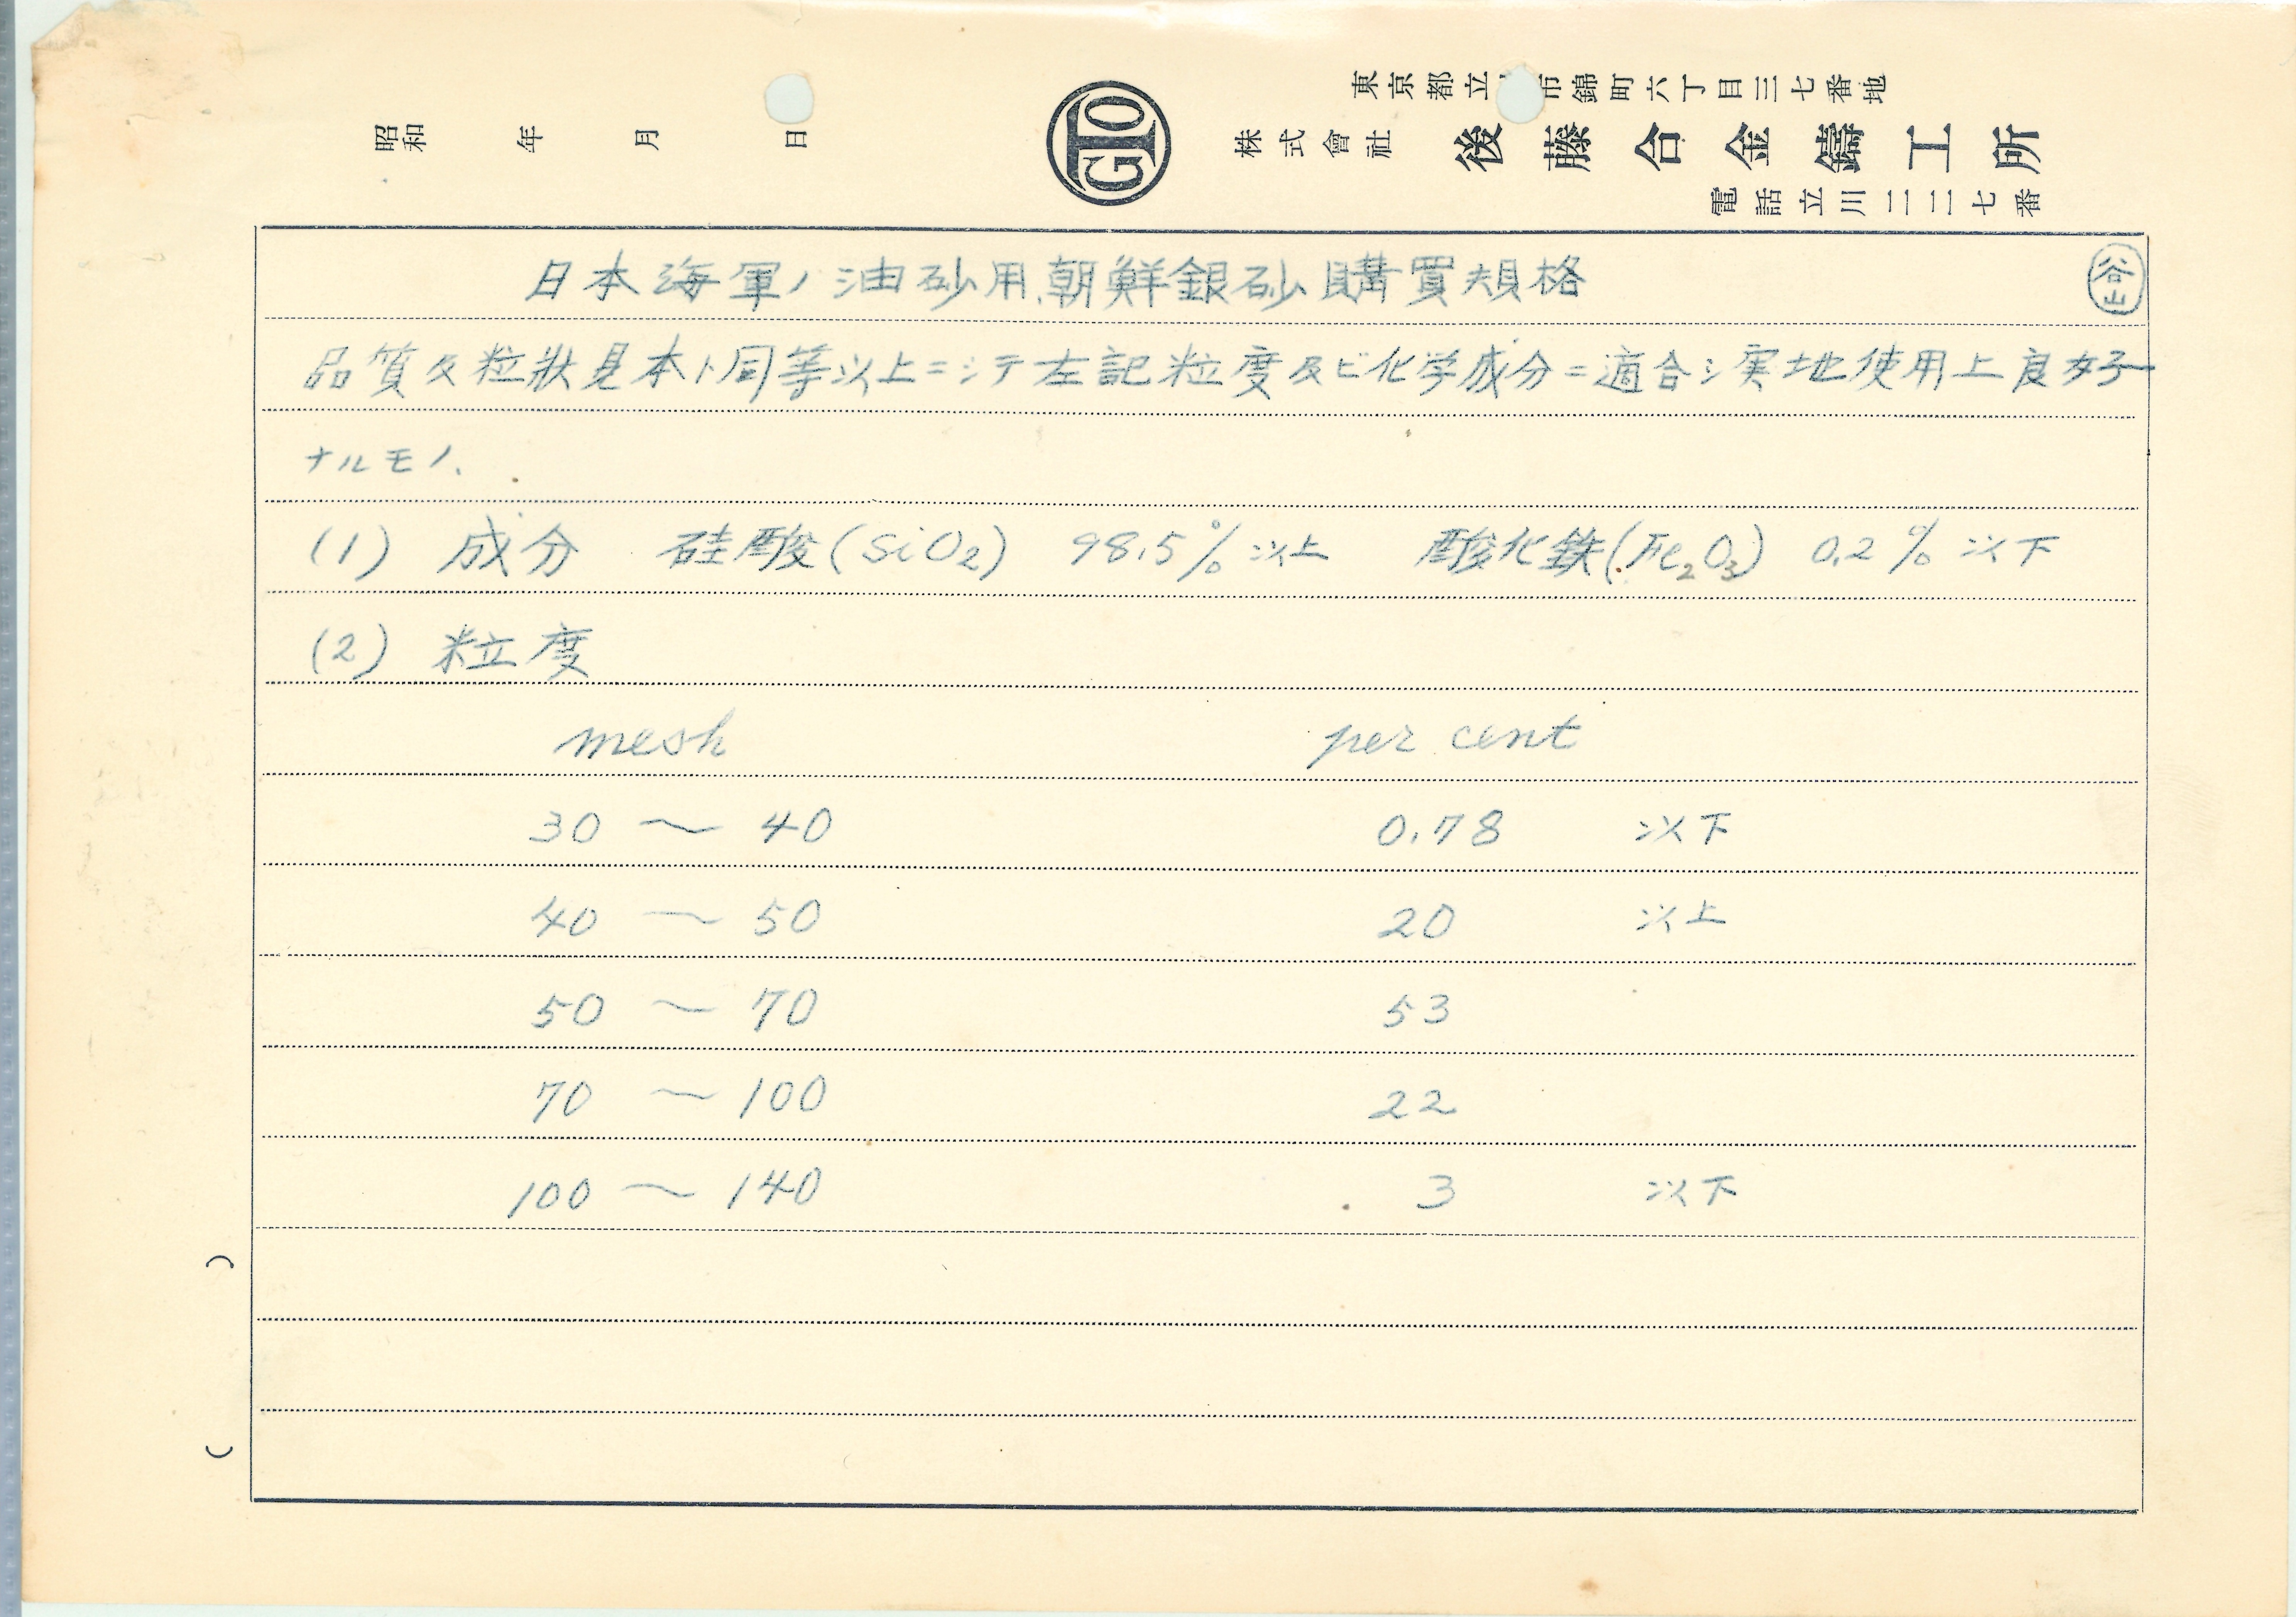 東京都立市錦町六丁目三七番地
昭和 年 月 日 GTO 株式會社 後藤合金鑄工所
電話立川二二七番
日本海軍ノ油砂用朝鮮銀砂購買規格 谷山
品質及粒狀見本ト同等以上ニシテ左記粒度及ビ化学成分ニ適合シ実地使用上良好
ナルモノ、
(1) 成分 硅酸(SiO₂) 98.5%以上 酸化鉄(Fe₂O₃) 0.2%以下
(2) 粒度
mesh per cent
30 〜 40 0.78 以下
40 〜 50 20 以上
50 〜 70 53
70 〜 100 22
100 〜 140 3 以下
( )